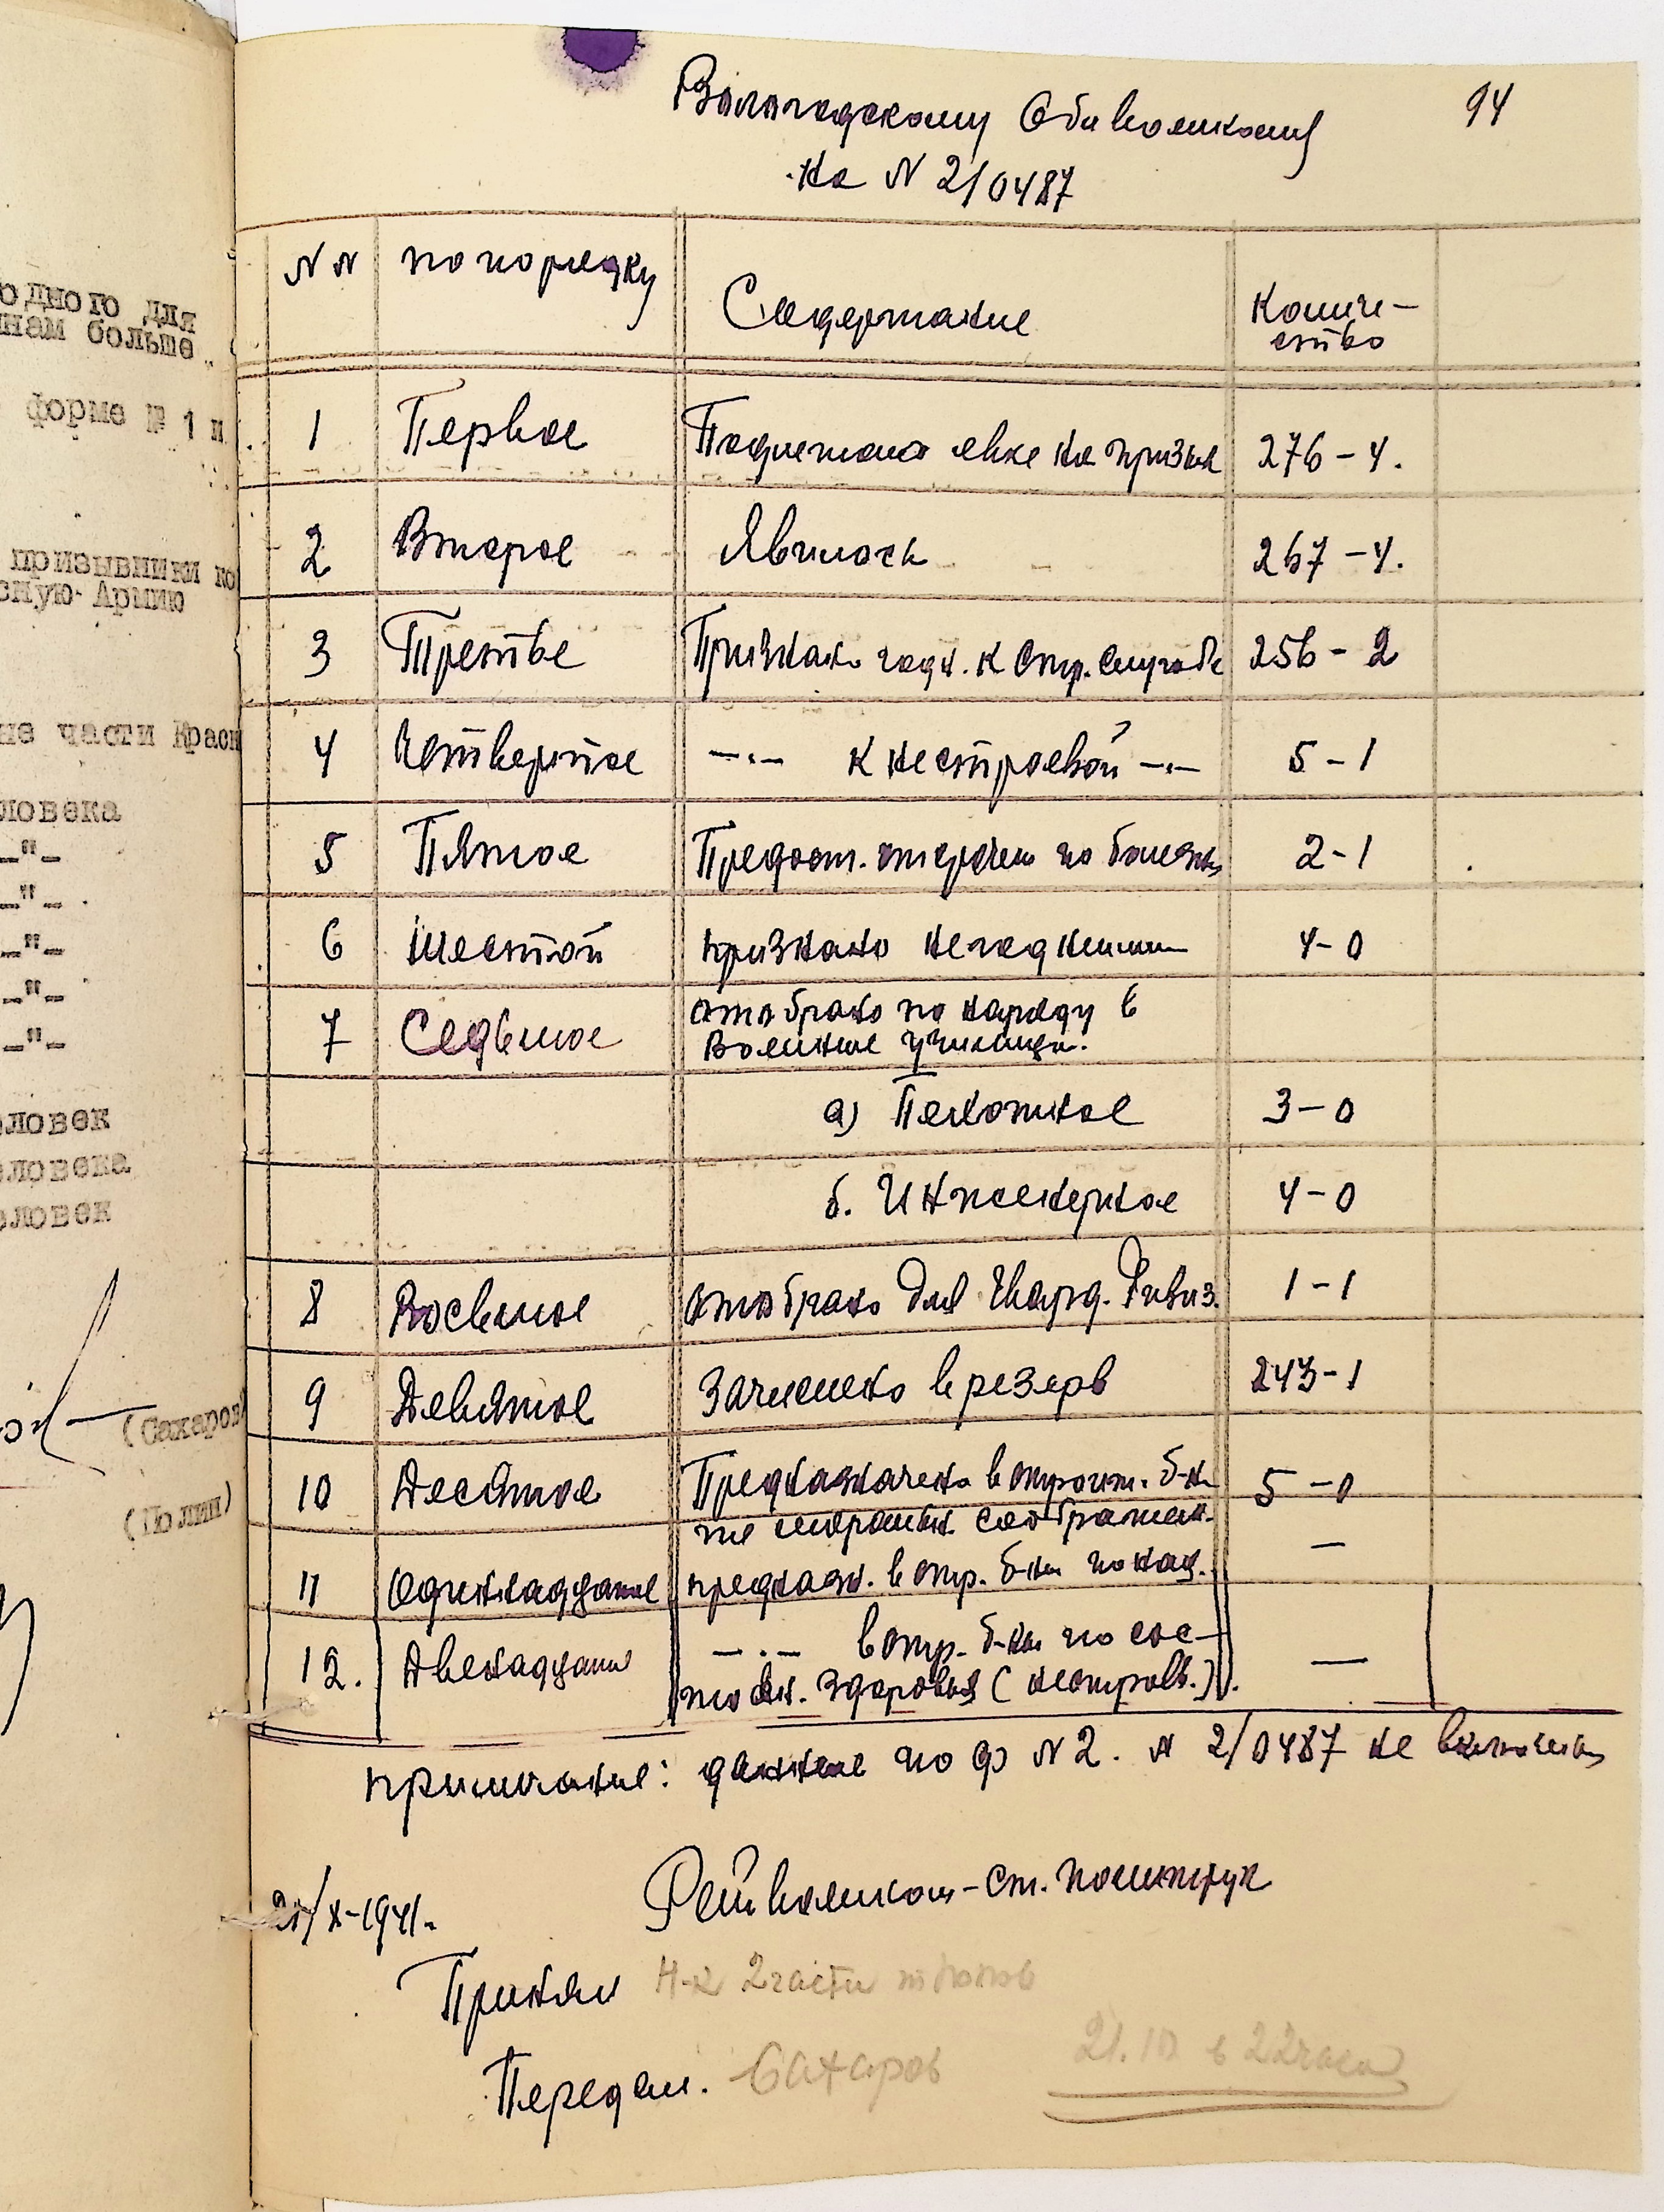 94
Вологодскому Облвоенкому
На N 2/0487
NN по порядку Содержание Количе-
ство
1 Первое Подлежало явке на призыв 276-4.
2 Второе Явилось 267-4.
3 Третье Признано годн. к стр. службе 256-2
4 Четвертое —"— к нестроевой —"— 5-1
5 Пятое Предост. отсрочен по болезни 2-1
6 Шестой признано негодными 4-0
7 Седьмое отобрано по наряду в
Военные училища.
а) Пехотное 3-0
б. Инженерное 4-0
8 Восьмое отобрано для Гвард. дивиз. 1-1
9 Девятое Зачислено в резерв 243-1
10 Десятое Предназначено в строит. б-н 5-0
по моральн. соображен.
11 Одиннадцатое предназн. в стр. б-он по нац. —
12. Двенадцатое —"— в стр. б-он по сос-
тоян. здоровья (нестроев.). —
примечание: данные по ф N 2. N 2/0487 не включены
21/X-1941.
Райвоенком - ст. политрук
Принял Н-к 2 части
Передал. Сахаров
21.10 в 22 часа
одного для
нам больше
форме № 1 и
призывники ко
сную Армию
ые части Красн
ловека
—"—
—"—.
—"—
—"—
—"—
ловек
еловека
еловек
(Сахаров
(Полин)